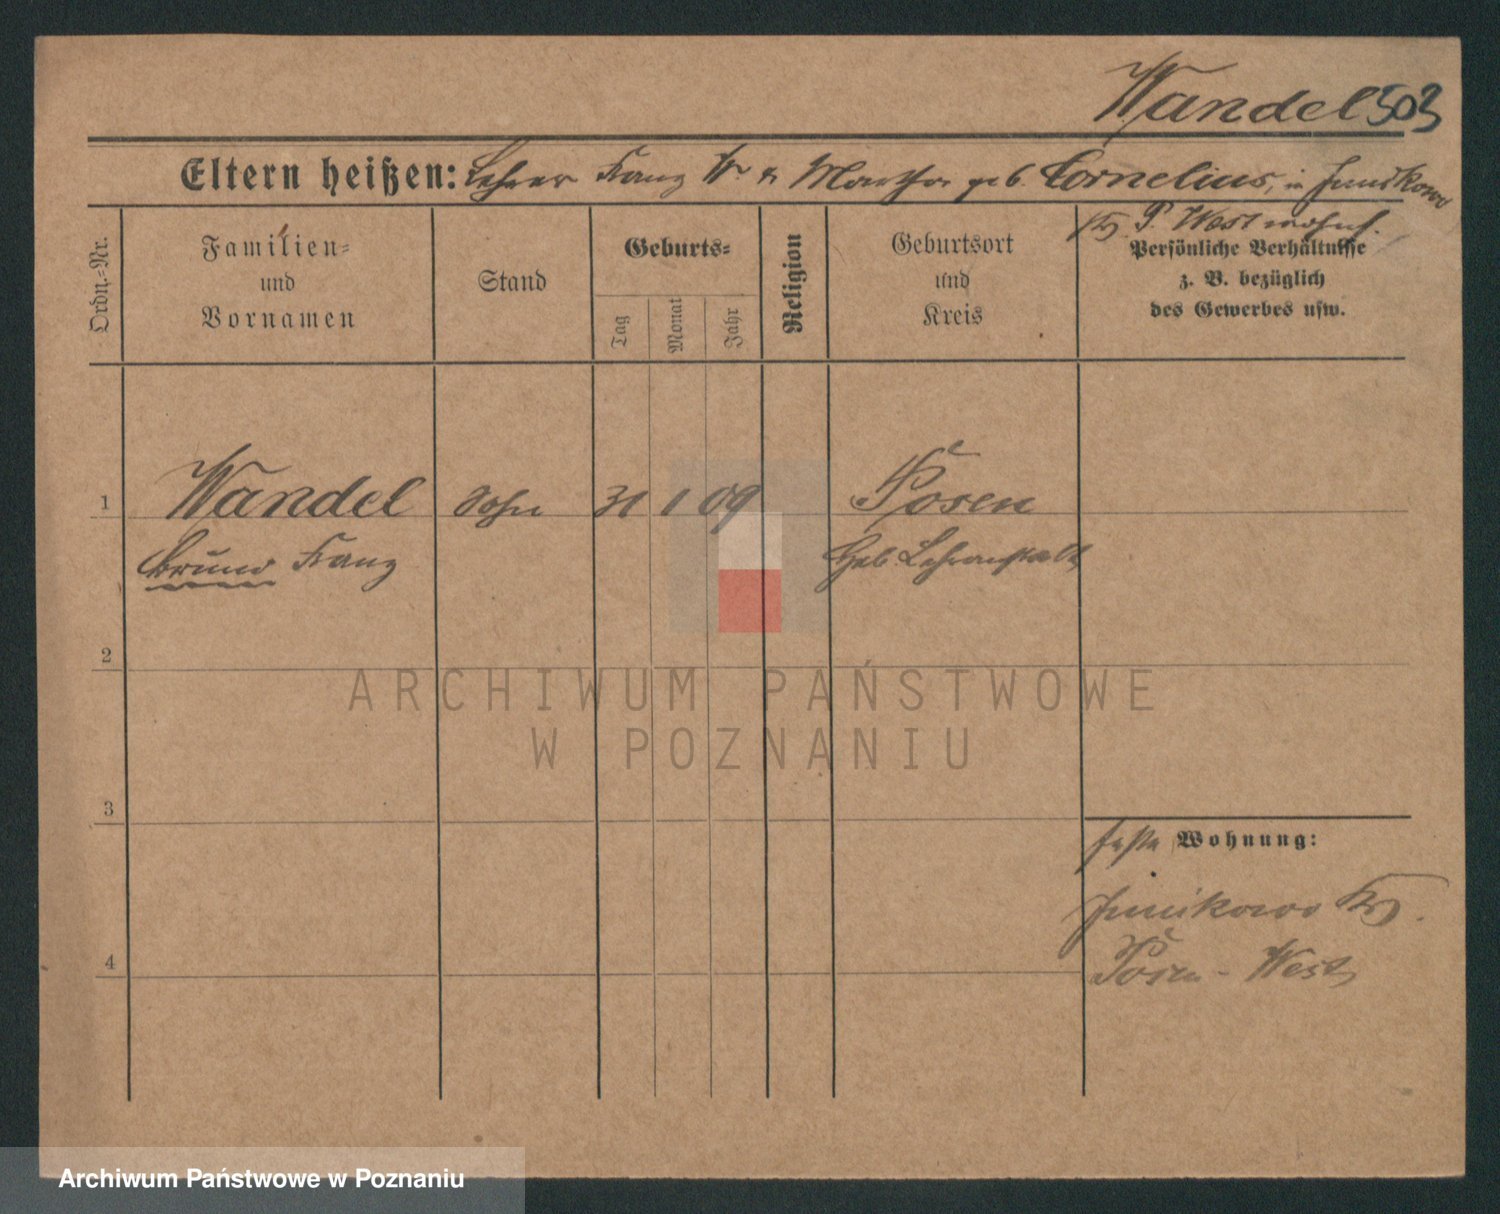 Wandel 503
Eltern heißen: Lehrer Franz W. & Martha geb. Cornelius, in Junikowo
Krs. P. West wohnh.
Ordn.=Nr.
Familien=
und
Vornamen
Stand
Geburts=
Tag
Monat
Jahr
Religion
Geburtsort
und
Kreis
Persönliche Verhältnisse
z. B. bezüglich
des Gewerbes usw.
1 Wandel Sohn 31 1 09 Posen
Bruno Franz Heb. Lehranstalt
2
ARCHIWUM PAŃSTWOWE
W POZNANIU
3
feste Wohnung:
Junikowo Krs.
4 Posen - West
Archiwum Państwowe w Poznaniu